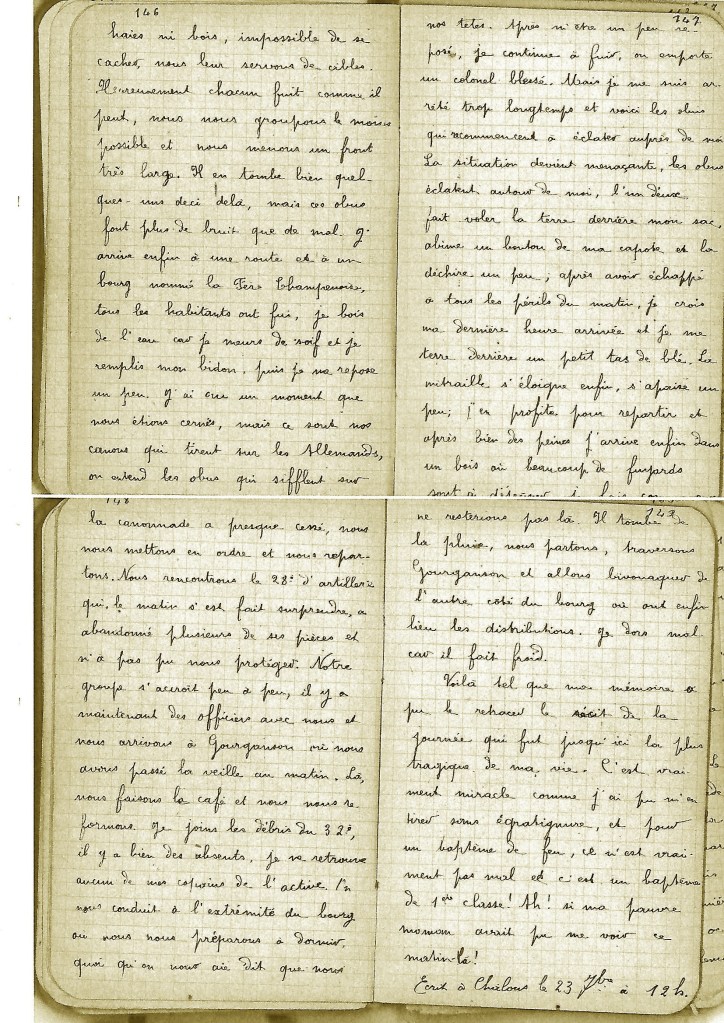 146
haies ni bois, impossible de se
cacher, nous leur servons de cibles.
Heureusement chacun fuit comme il
peut, nous nous groupons le moins
possible et nous menons un front
très large. Il en tombe bien quel-
ques-uns deci delà, mais ces obus
font plus de bruit que de mal. J'
arrive enfin à une route et à un
bourg nommé la Fère Champenoise,
tous les habitants ont fui, je bois
de l'eau car je meurs de soif et je
remplis mon bidon, puis je me repose
un peu. J'ai cru un moment que
nous étions cernés, mais ce sont nos
canons qui tirent sur les Allemands,
on entend les obus qui sifflent sur
147
nos têtes. Après m'être un peu re-
posé, je continue à fuir, on emporte
un colonel blessé. Mais je me suis ar-
rêté trop longtemps et voici les obus
qui recommencent à éclater auprès de moi
La situation devient menaçante, les obus
éclatent autour de moi, l'un deux
fait voler la terre derrière mon sac,
abime un bouton de ma capote et la
déchire un peu ; après avoir échappé
à tous les périls du matin, je crois
ma dernière heure arrivée et je me
terre derrière un petit tas de blé. La
mitraille s'éloigne enfin, s'apaise un
peu ; j'en profite pour repartir et
après bien des peines j'arrive enfin dans
un bois où beaucoup de fuyards
148
la canonnade a presque cessé, nous
nous mettons en ordre et nous repar-
tons. Nous rencontrons le 28e d'artillerie
qui, le matin s'est fait surprendre, a
abandonné plusieurs de ses pièces et
n'a pas pu nous protéger. Notre
groupe s'accroit peu à peu, il y a
maintenant des officiers avec nous et
nous arrivons à Gourganson où nous
avons passé la veille au matin. Là,
nous faisons le café et nous nous re-
formons. Je joins les débris du 32e,
il y a bien des absents, je ne retrouve
aucun de mes copains de l'active. On
nous conduit à l'extrémité du bourg
où nous nous préparons à dormir,
quoi qu'on nous aie dit que nous
149
ne resterions pas là. Il tombe de
la pluie, nous partons, traversons
Gourganson et allons bivouaquer de
l'autre côté du bourg où ont enfin
lieu les distributions. Je dors mal
car il fait froid.
Voilà tel que ma mémoire a
pu le retracer le récit de la
journée qui fut jusqu'ici la plus
tragique de ma vie. C'est vrai-
ment miracle comme j'ai pu m'en
tirer sans égratignure, et pour
un baptême de feu, ce n'est vrai-
ment pas mal et c'est un baptême
de 1ère classe ! Ah ! si ma pauvre
maman avait pu me voir ce
matin-là !
Ecrit à Châlons le 23 7bre à 12h.